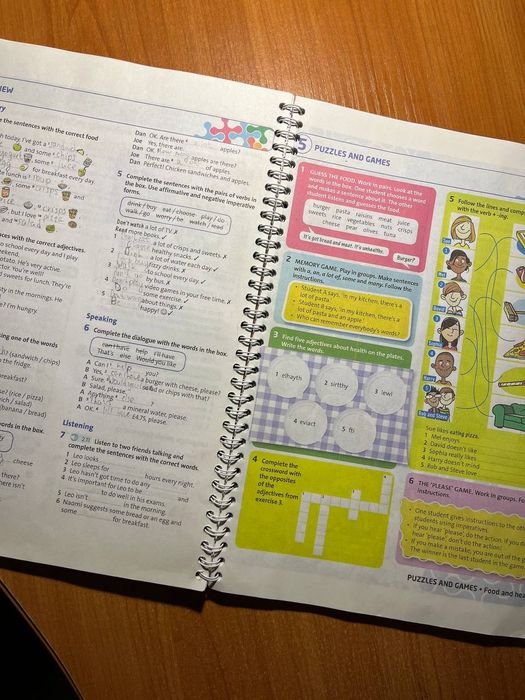 EW
e the sentences with the correct food
h today. I've got a
and some
some
for breakfast every day.
e lunch is
some
and
, but I love
ces with the correct adjectives.
o school every day and I play
eekend.
otato. He's every active.
ctor. You're well!
d sweets for lunch. They're
ty in the mornings. He
? I'm hungry.
ing one of the words
(sandwich / chips)
the fridge.
reakfast?
(rice / pizza)
nch / salad)
(banana / bread)
words in the box.
cheese
there?
ere isn't
Dan OK. Are there apples?
Joe Yes, there are.
Dan OK. apples are there?
Joe There are of apples.
Dan Perfect! Chicken sandwiches and apples.
5 Complete the sentences with the pairs of verbs in
the box. Use affirmative and negative imperative
forms.
drink / buy eat / choose play / do
walk / go worry / be watch / read
Don't watch a lot of TV. ✗
Read more books. ✓
1 a lot of crisps and sweets. ✗
healthy snacks. ✓
2 a lot of water each day. ✓
fizzy drinks. ✗
3 to school every day. ✓
by bus. ✗
4 video games in your free time. ✗
some exercise. ✓
5 about things. ✗
happy! ✓
Speaking
6 Complete the dialogue with the words in the box.
can I have help I'll have
That's else Would you like
A Can I help you?
B Yes, a burger with cheese, please?
A Sure. salad or chips with that?
B Salad, please.
A Anything else?
B a mineral water, please.
A OK. £4.75, please.
Listening
7 2.11 Listen to two friends talking and
complete the sentences with the correct words.
1 Leo looks
2 Leo sleeps for hours every night.
3 Leo hasn't got time to do any
4 It's important for Leo to be and
to do well in his exams.
5 Leo isn't in the morning.
6 Naomi suggests some bread or an egg and
some for breakfast.
5 PUZZLES AND GAMES
1 GUESS THE FOOD. Work in pairs. Look at the
words in the box. One student chooses a word
and makes a sentence about it. The other
student listens and guesses the food.
burger pasta raisins meat juice
sweets rice vegetables nuts crisps
cheese pear olives tuna
It's got bread and meat. It's unhealthy.
Burger?
2 MEMORY GAME. Play in groups. Make sentences
with a, an, a lot of, some and many. Follow the
instructions.
• Student A says, 'In my kitchen, there's a
lot of pasta.'
• Student B says, 'In my kitchen, there's a
lot of pasta and an apple'.
• Who can remember everybody's words?
3 Find five adjectives about health on the plates.
Write the words.
1 elhayth
2 sirthy
3 lewl
4 eviact
5 fti
4 Complete
the
crossword
with the
opposites
of the
adjectives from
exercise 3.
5 Follow the lines and comp
with the verb + -ing.
Sue
Mel
David
Sophia
Harry
Rob and Steve
Sue likes eating pizza.
1 Mel enjoys
2 David doesn't like
3 Sophia really likes
4 Harry doesn't mind
5 Rob and Steve love
6 THE 'PLEASE' GAME. Work in groups. Fo
instructions.
• One student gives instructions to the o
students using imperatives.
• If you hear 'please', do the action. If you
hear 'please', don't do the action!
• If you make a mistake, you are out of the g
The winner is the last student in the game.
PUZZLES AND GAMES • Food and hea